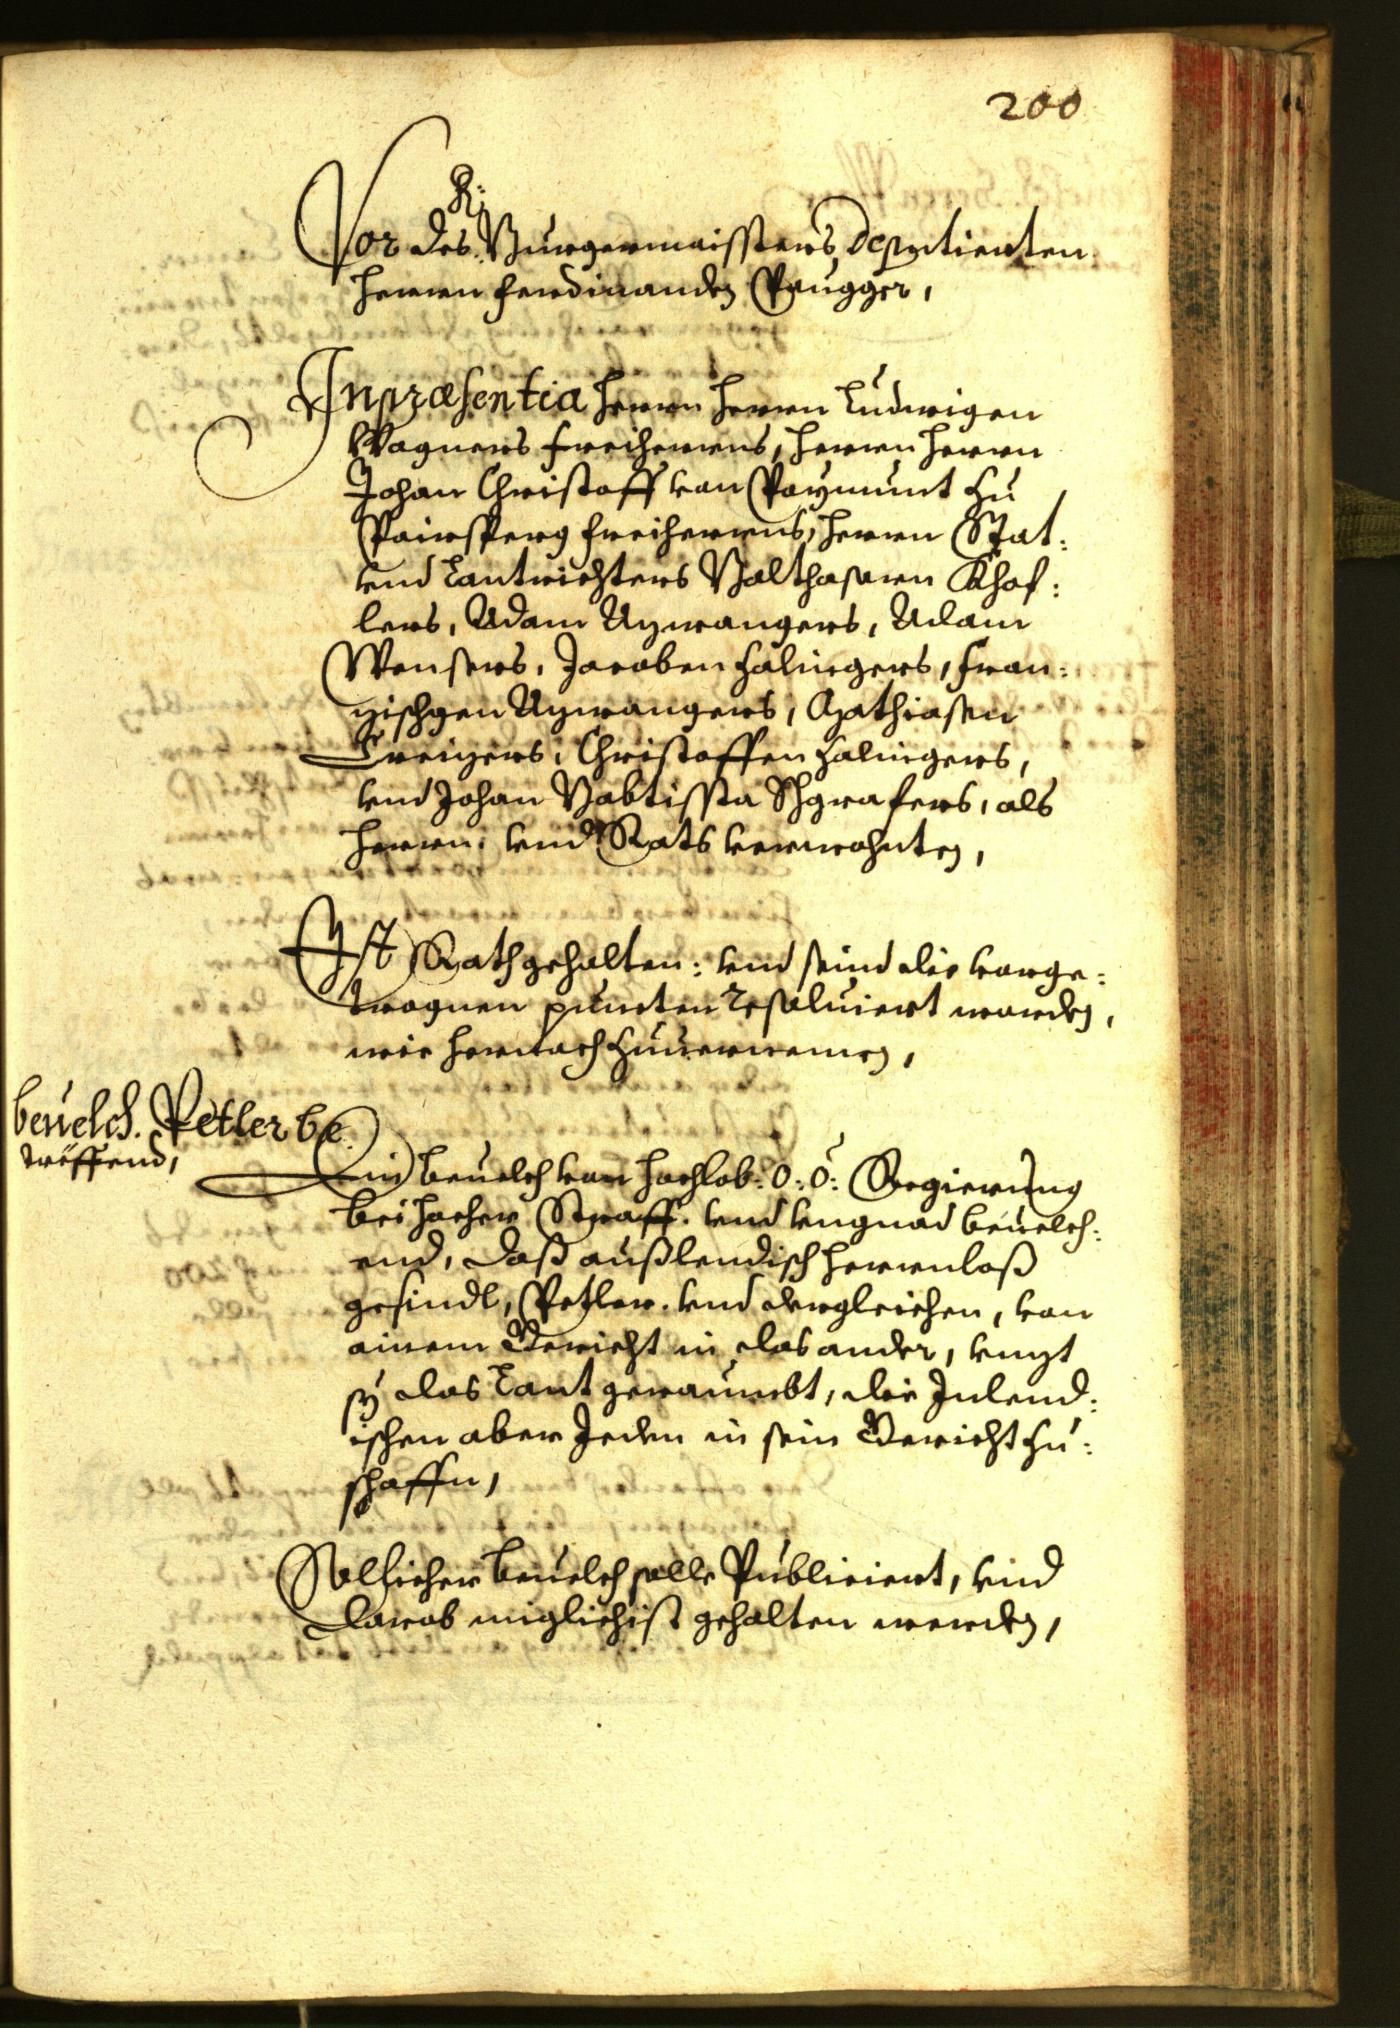 200
R:
Vor des Burgermaissters Deputierten
Herrn Ferdinanden Paugger,
In præsentia Herrn Herrn Ludwigen
Wagners Freiherrens, Herrn Herrn
Johan Christoff von Paymunt zu
Pairsperg Freiherrens, Herrn Stat:
vnd Lantrichters Balthasarn Khof:
lers, Adam Azwangers, Adam
Wensers, Jacoben Halingers, Fran:
zischgen Azwangers, Mathiasen
Creizers, Christoffen Halingers,
vnd Johan Babtissta Schgrafers, als
Herrn: vnd Rats verwohnten,
Ist Rath gehalten: vnd seind die vorge:
tragnen puncten resoluiert worden,
wie hernach zuuernemen,
beuelch. Petler be
treffend,
Ein beuelch von hochlob: O: Ö: Regierung
bei hocher Straff. vnd vngnad beuelch:
end, daß außlendisch herrenloß
gesindl, Petler. vnd dergleichen, von
ainem Gericht in das ander, vnzt
sÿ das Lant geraumbt, die Inlend:
ischen aber Jeden in sein Gericht zu:
schaffn,
Sollicher beuelch solle Publiciert, vnd
darob miglichist gehalten werden,